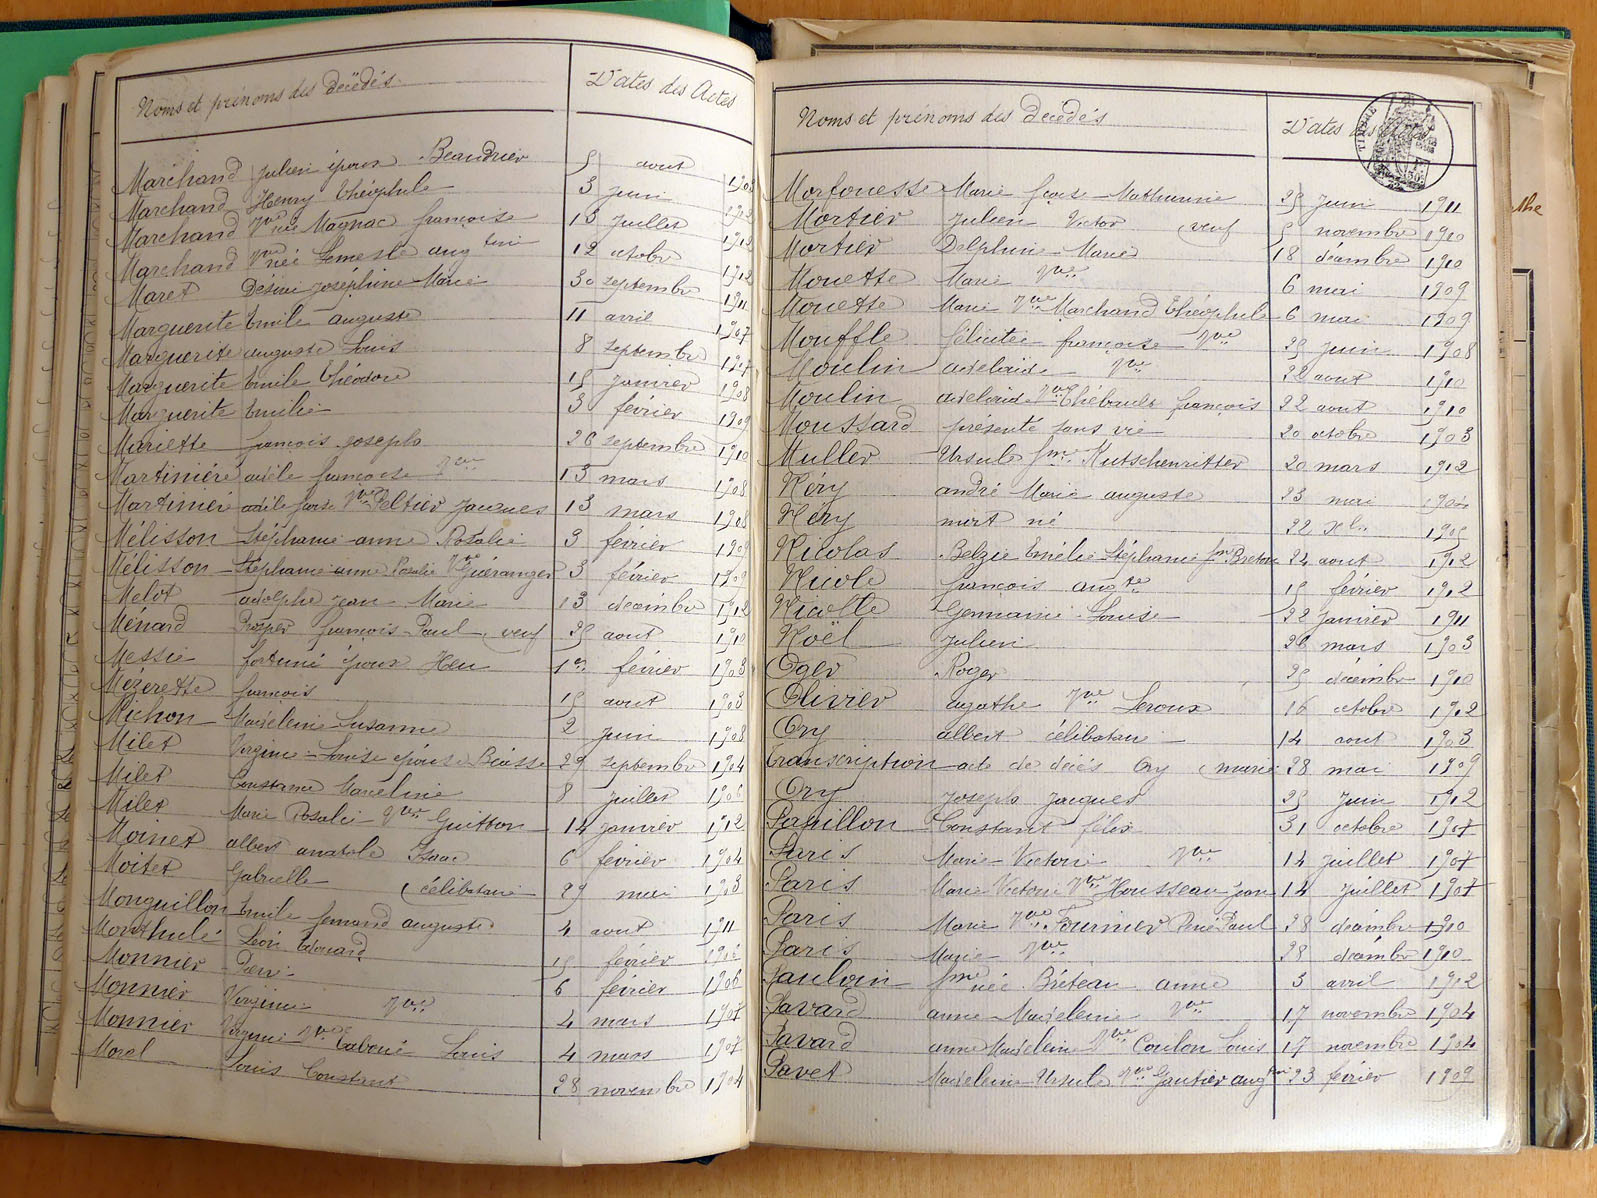 Noms et prénoms des décédés Dates des Actes
Marchand Julien époux Beaudrier 5 aout
Marchand Henry théophile 3 juin 1912
Marchand Vve née Magnac françoise 13 Juillet 1912
Marchand Vve née Lemesle augtine 12 octobre 1912
Maret Désirée Joséphine Marie 30 septembre 1911
Marguerite Emile auguste 11 avril 1907
Marguerite auguste Louis 8 septembre 1907
Marguerite Emile théodore 15 janvier 1908
Marguerite Emilie 3 février 1909
Mariette françois joseph 26 septembre 1910
Martinière adèle françoise Vve 13 mars 1908
Martinière adèle foise Vve Peltier Jacques 13 mars 1908
Mélisson Stéphanie anne Rosalie 3 février 1909
Mélisson Stéphanie anne Rosalie Vve Guéranger 3 février 1909
Melot adolphe Jean Marie 13 décembre 1912
Ménard Prosper françois Paul veuf 25 aout 1910
Messie fortuné époux Heu 1er février 1903
Mezerette françois 15 aout 1903
Michon Madeleine Susanne 2 juin 1908
Milet Virginie Louise épouse Béasse 29 septembre 1904
Milet Constance Marceline 8 juillet 1906
Milet Marie Rosalie Vve Guitton 14 janvier 1912
Moinet albert anatole Isaac 6 février 1904
Moitet Gabrielle célibataire 29 mai 1903
Monguillon Emile fernand auguste 4 aout 1911
Monthulé Léon Edouard 15 février
Monnier Pierre 6 février 1906
Monnier Virginie Vve 4 mars 1907
Monnier Virginie Vve Taboué Louis 4 mars 1907
Morel Louis Constant 28 novembre 1904
Noms et prénoms des Décédés Dates des Actes
TIMBRE
Morfouesse Marie foise Mathurine 25 juin 1911
Mortier Julien Victor veuf 5 novembre 1910
Mortier Delphine Marie 18 décembre 1910
Mouette Marie Vve 6 mai 1909
Mouette Marie Vve Marchand théophile 6 mai 1909
Mouffle félicitée françoise Vve 25 juin 1908
Moulin adelaide Vve 22 aout 1910
Moulin adelaide Vve Thébault françois 22 aout 1910
Moussard présenté sans vie 20 octobre 1903
Muller Ursule fme Kutschenritter 20 mars 1912
Néry andré Marie auguste 23 mai
Néry mort né 22 Xbre 1905
Nicolas Belzie Emélie Stéphanie fme Breton 24 aout 1912
Nicole françois augte 15 février 1912
Nicolle Germaine Louise 22 janvier 1911
Noël Julien 26 mars 1903
Oger Roger 25 décembre 1910
Olivier agathe Vve Leroux 16 octobre 1902
Ory albert célibataire 14 aout 1903
Transcription acte de décès Ory marie 28 mai 1909
Ory Joseph Jacques 25 juin 1912
Papillon Constant félix 31 octobre 1907
Paris Marie Victorie Vve 14 juillet 1907
Paris Marie Victorie Vve Housseau Jean 14 juillet 1907
Paris Marie Vve Fournier René Paul 28 décembre 1910
Paris Marie Vve 28 décembre 1910
Paulouin fme née Bréteau anne 3 avril 1912
Pavard anne Madeleine Vve 17 novembre 1904
Pavard anne Madeleine Vve Coulon Louis 17 novembre 1904
Pavet Madeleine Ursule Vve Gautier augtin 23 février 1909